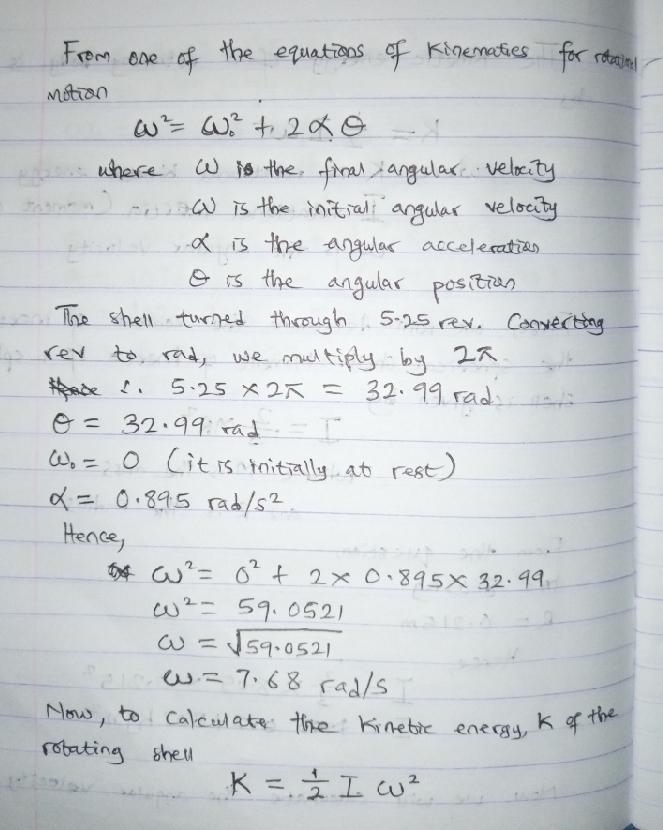 From one of the equations of Kinematics for rotational
motion
ω² = ω₀² + 2αθ
where ω is the final angular velocity
ω is the initial angular velocity
α is the angular acceleration
θ is the angular position
The shell turned through 5.25 rev. Converting
rev to rad, we multiply by 2π
∴ 5.25 × 2π = 32.99 rad
θ = 32.99 rad
ω₀ = 0 (it is initially at rest)
α = 0.895 rad/s²
Hence,
ω² = 0² + 2 × 0.895 × 32.99
ω² = 59.0521
ω = √59.0521
ω = 7.68 rad/s
Now, to calculate the kinetic energy, K of the
rotating shell
K = ½ I ω²